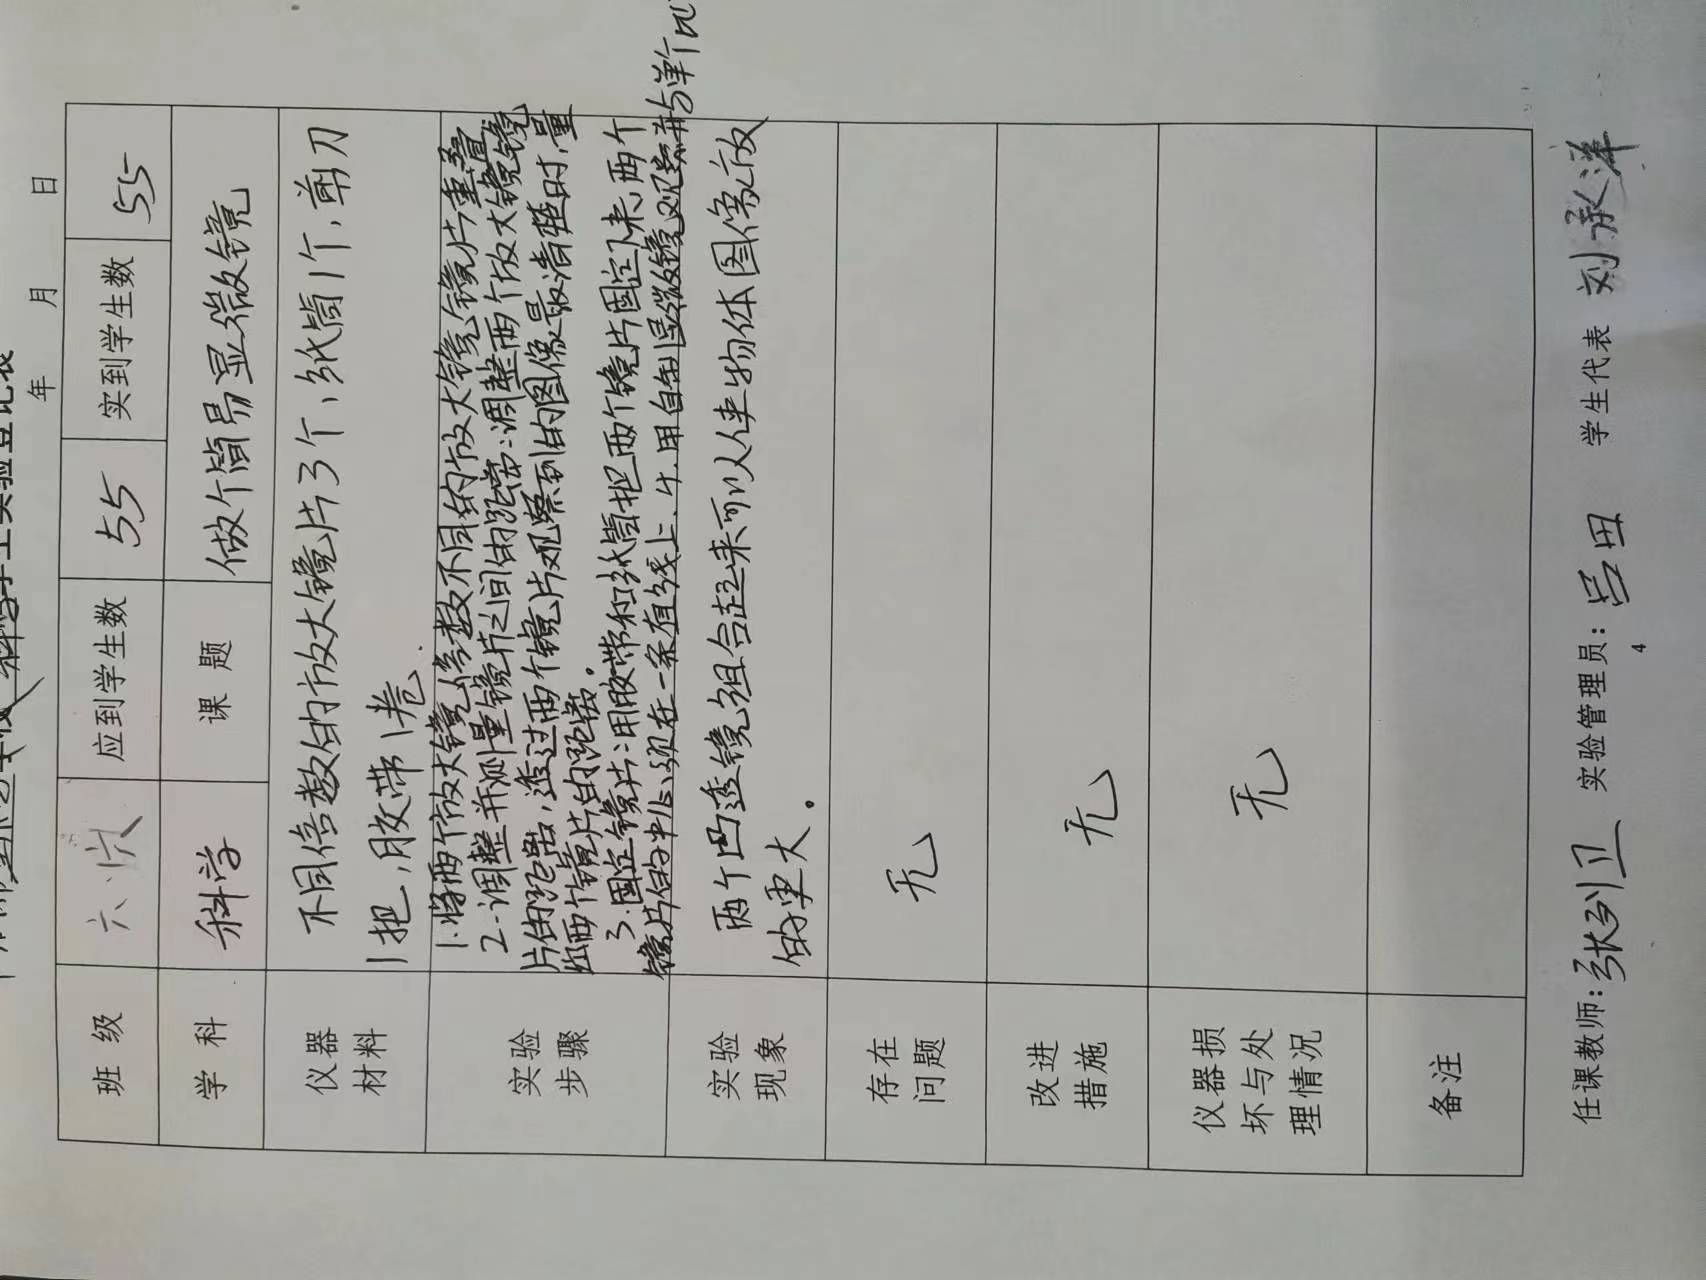 科学学生实验登记表
年 月 日
班 级 六.六 应到学生数 55 实到学生数 55
学 科 科学 课 题 做个简易显微镜
仪器材料 不同倍数的放大镜片3个,纸筒1个,剪刀
1把,胶带1卷.
实验步骤 1.将两个放大镜:倍数不同的放大镜镜片重叠
2.调整并测量镜片之间的距离:调整两个放大镜镜
片的距离,透过两个镜片观察到的图像最清楚时,量
出两个镜片的距离.
3.固定镜片:用胶带和纸筒把两个镜片固定下来,两个
镜片的中心须在一条直线上.4.用自制显微镜观察并与单个比
实验现象 两个凸透镜组合起来可以使物体图像放
的更大.
存在问题 无
改进措施 无
仪器损坏与处理情况 无
备注
任课教师: 张卫 实验管理员: 吕田 学生代表 刘承洋
4